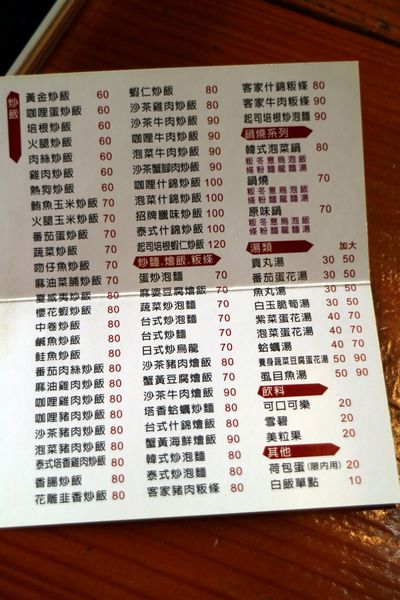 炒飯
黃金炒飯 60
咖哩蛋炒飯 60
培根炒飯 60
火腿炒飯 60
肉絲炒飯 60
雞肉炒飯 60
熱狗炒飯 60
鮪魚玉米炒飯 70
火腿玉米炒飯 70
番茄蛋炒飯 70
蔬菜炒飯 70
吻仔魚炒飯 70
麻油菜脯炒飯 70
夏威夷炒飯 80
櫻花蝦炒飯 80
中卷炒飯 80
鹹魚炒飯 80
鮭魚炒飯 80
番茄肉絲炒飯 80
麻油雞肉炒飯 80
咖哩雞肉炒飯 80
咖哩豬肉炒飯 80
沙茶豬肉炒飯 80
泡菜豬肉炒飯 80
泰式塔香雞肉炒飯 80
香腸炒飯 80
花雕韭香炒飯 80
蝦仁炒飯 80
沙茶雞肉炒飯 80
沙茶牛肉炒飯 90
咖哩牛肉炒飯 90
泡菜牛肉炒飯 90
沙茶蟹腳肉炒飯 90
咖哩什錦炒飯 100
泡菜什錦炒飯 100
招牌臘味炒飯 100
泰式什錦炒飯 100
起司培根蝦仁炒飯 120
炒麵.燴飯.粄條
蛋炒泡麵 70
麻婆豆腐燴飯 70
蔬菜炒泡麵 70
台式炒泡麵 70
台式炒麵 70
日式炒烏龍 70
沙茶豬肉燴飯 80
蟹黃豆腐燴飯 70
沙茶牛肉燴飯 90
塔香蛤蠣炒麵 80
台式什錦燴飯 90
蟹黃海鮮燴飯 90
韓式炒泡麵 80
泰式炒泡麵 80
客家豬肉粄條 80
客家什錦粄條 80
客家牛肉粄條 90
起司培根炒泡麵 90
鍋燒系列
韓式泡菜鍋 80
粄冬意烏泡飯
條粉麵龍麵湯
鍋燒 70
粄冬意烏泡飯
條粉麵龍麵湯
原味鍋 70
粄冬意烏泡飯
條粉麵龍麵湯
湯類 加大
貢丸湯 30 50
番茄蛋花湯 30 50
魚丸湯 30 50
白玉脆筍湯 30 50
紫菜蛋花湯 40 70
泡菜蛋花湯 40 70
蛤蠣湯 40 70
養身蔬菜豆腐蛋花湯 50 90
虱目魚湯 50 90
飲料
可口可樂 20
雪碧 20
美粒果 20
其他
荷包蛋(限內用) 20
白飯單點 10